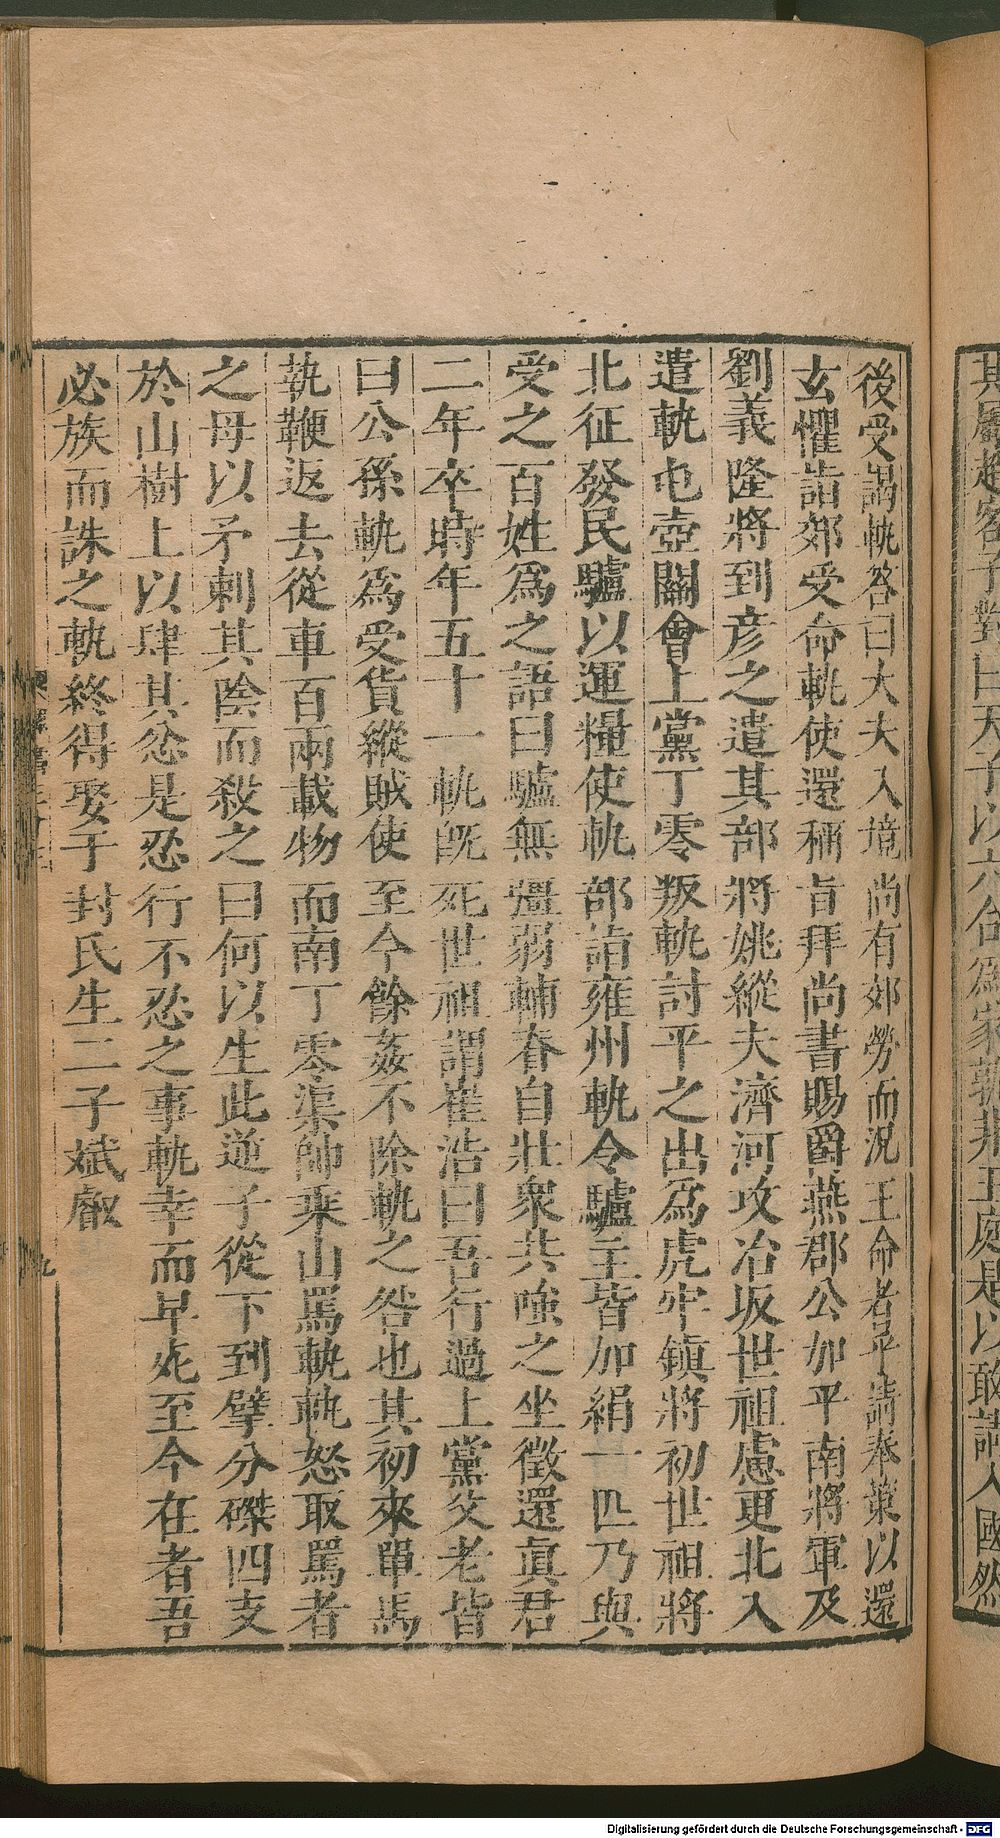 其屬趙客子對曰天子以六合爲家孰非王庭是以敢請入國然
後受謁軌答曰大夫入境尚有郊勞而況王命者乎請奉策以還
玄懼詣郊受命軌使還稱旨拜尚書賜爵燕郡公加平南將軍及
劉義隆將到彦之遣其部將姚縱夫濟河攻冶坂世祖慮更北入
遣軌屯壺關會上黨丁零叛軌討平之出爲虎牢鎮將初世祖將
北征發民驢以運糧使軌部詣雍州軌令驢主皆加絹一匹乃與
受之百姓爲之語曰驢無彊弱輔脊自壯衆共嗤之坐徵還眞君
二年卒時年五十一軌旣死世祖謂崔浩曰吾行過上黨父老皆
曰公孫軌爲受貨縱賊使至今餘姦不除軌之咎也其初來單馬
執鞭返去從車百兩載物而南丁零渠帥乘山罵軌軌怒取罵者
之母以矛刺其陰而殺之曰何以生此逆子從下到擘分磔四支
於山樹上以肆其忿是忍行不忍之事軌幸而早死至今在者吾
必族而誅之軌終得娶于封氏生二子斌叡
九
Digitalisierung gefördert durch die Deutsche Forschungsgemeinschaft - DFG